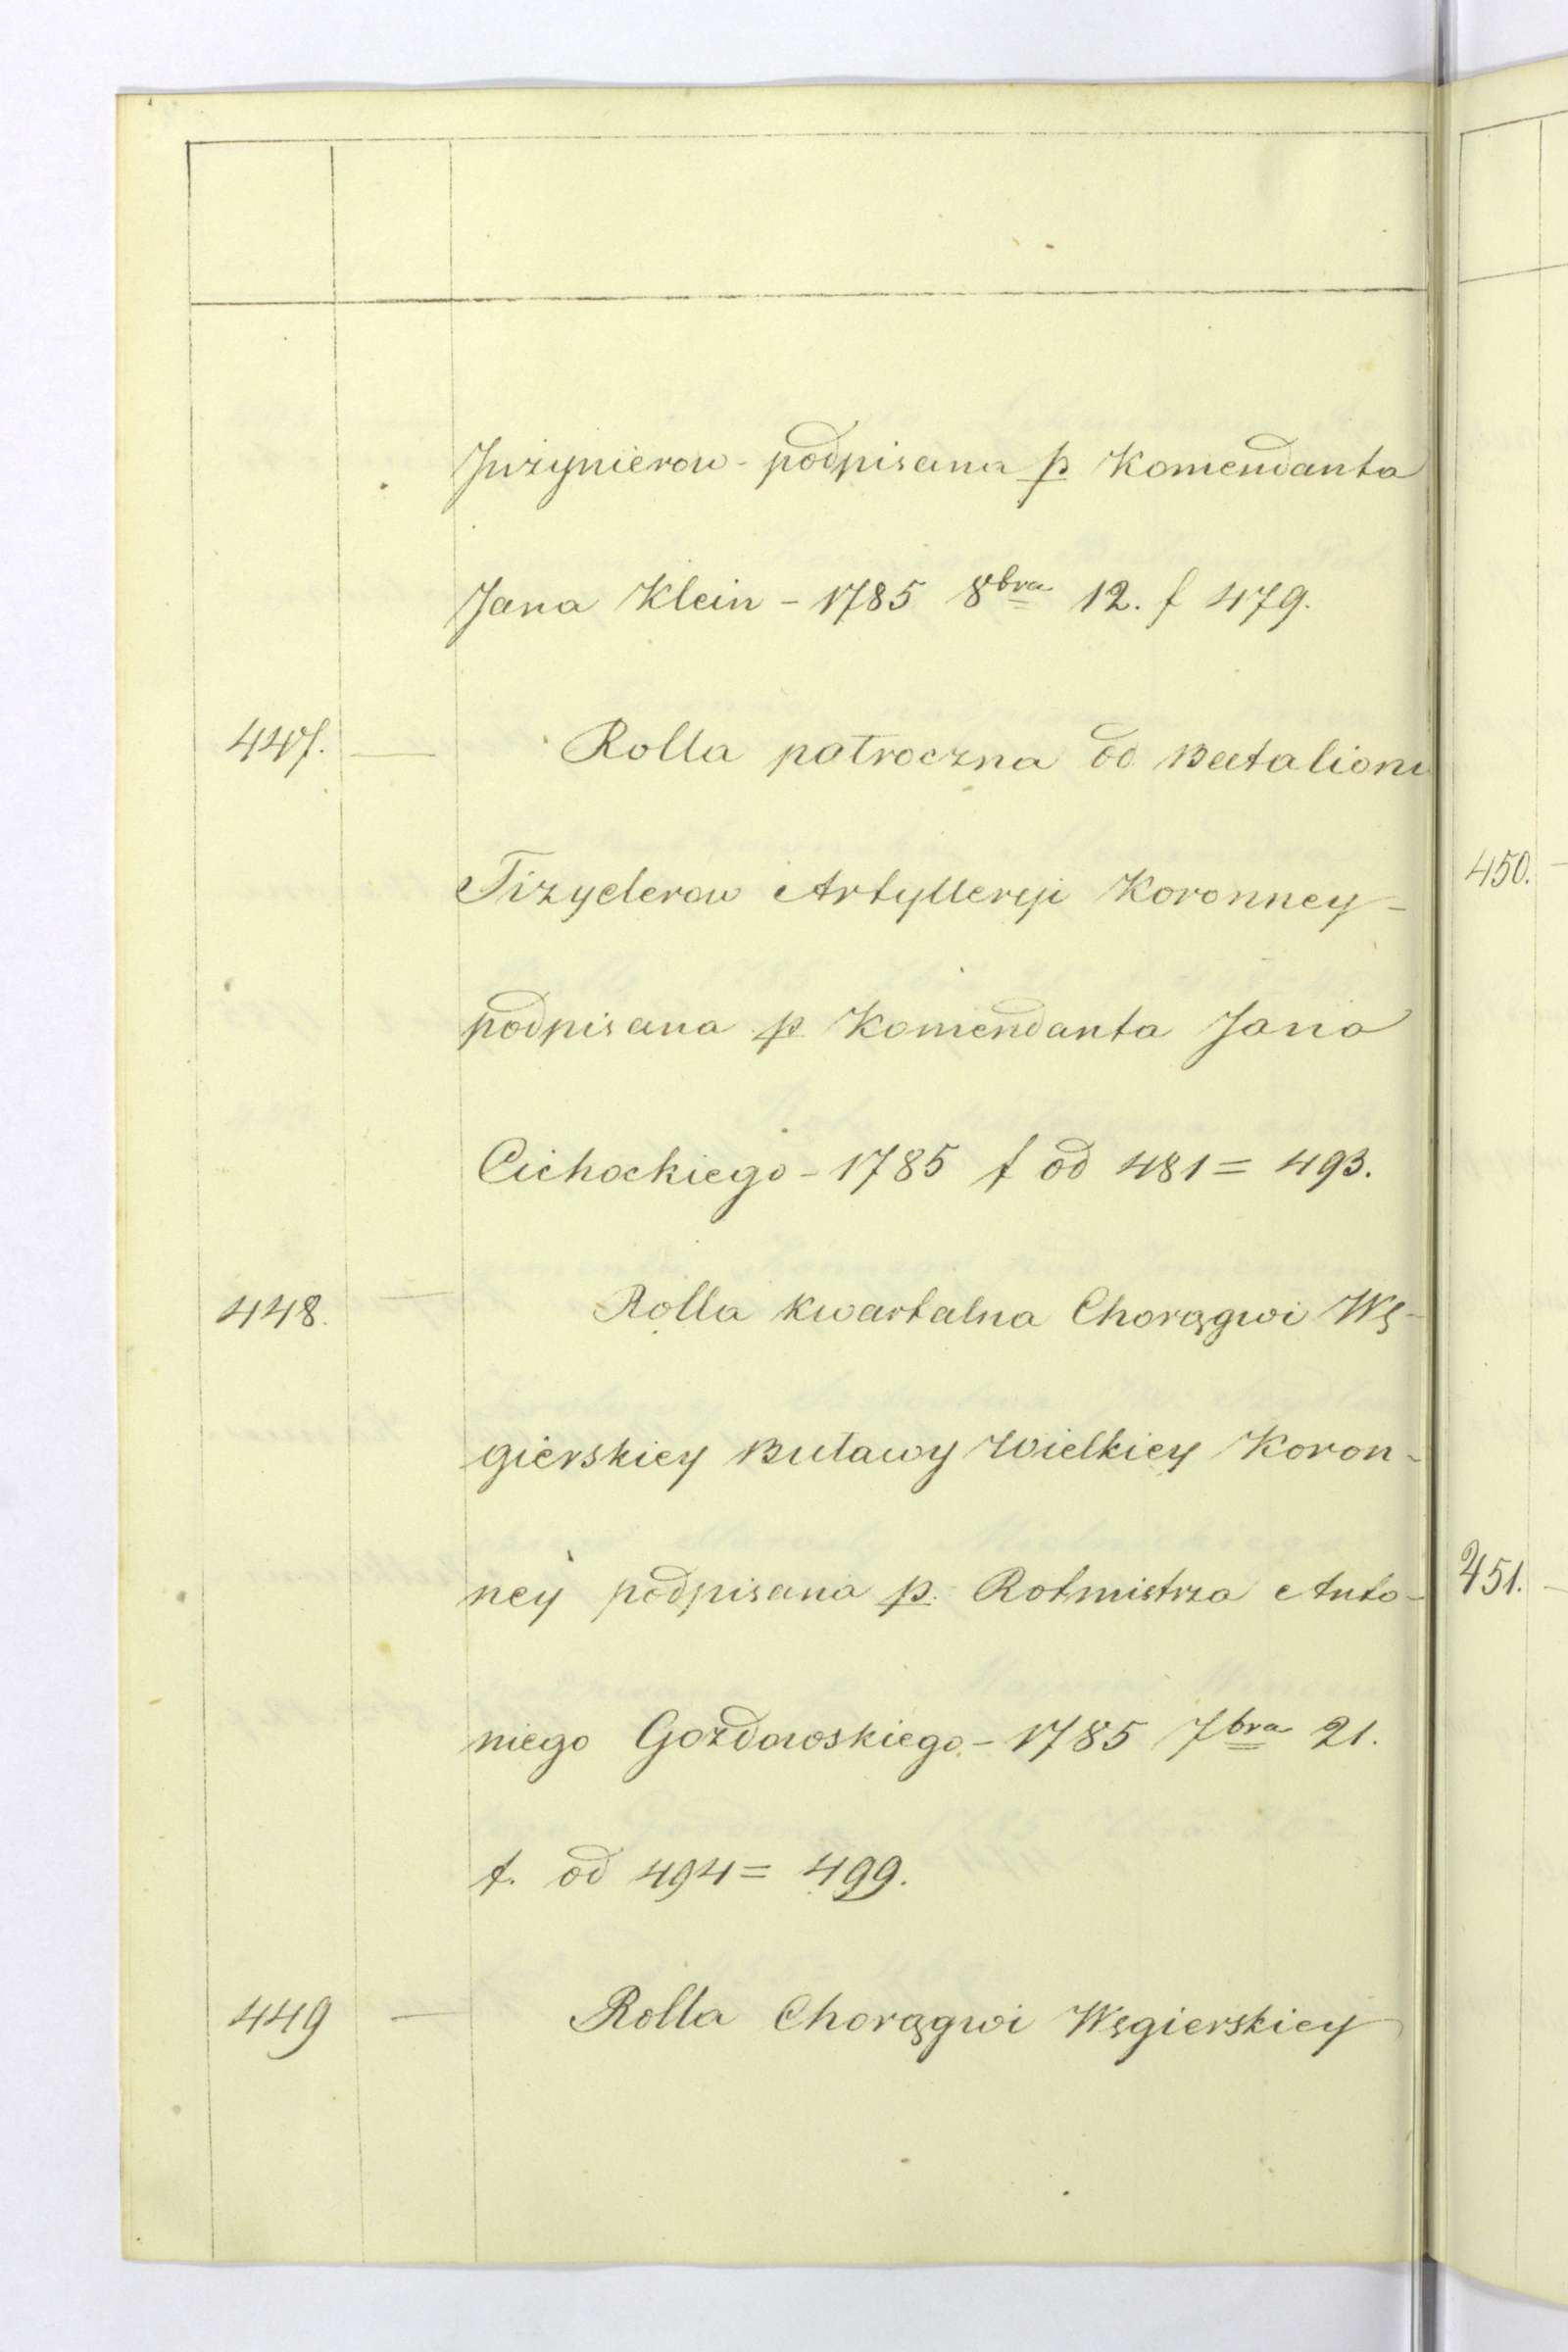 Jnżynierow - podpisana p Komendanta
Jana Klein - 1785 8bra 12. f 479.
447. — Rolla połroczna od Batalionu
Fizyelerow Artylleryi Koronney -
podpisana p Komendanta Jana
Cichockiego - 1785 f od 481 = 493.
448. — Rolla kwartalna Chorągwi Wę-
gierskiey Buławy Wielkiey Koron-
ney podpisana p. Rotmistrza Anto-
niego Gozdowskiego - 1785 7bra 21.
f. od 494 = 499.
449 — Rolla Chorągwi Węgierskiey
450.
451.